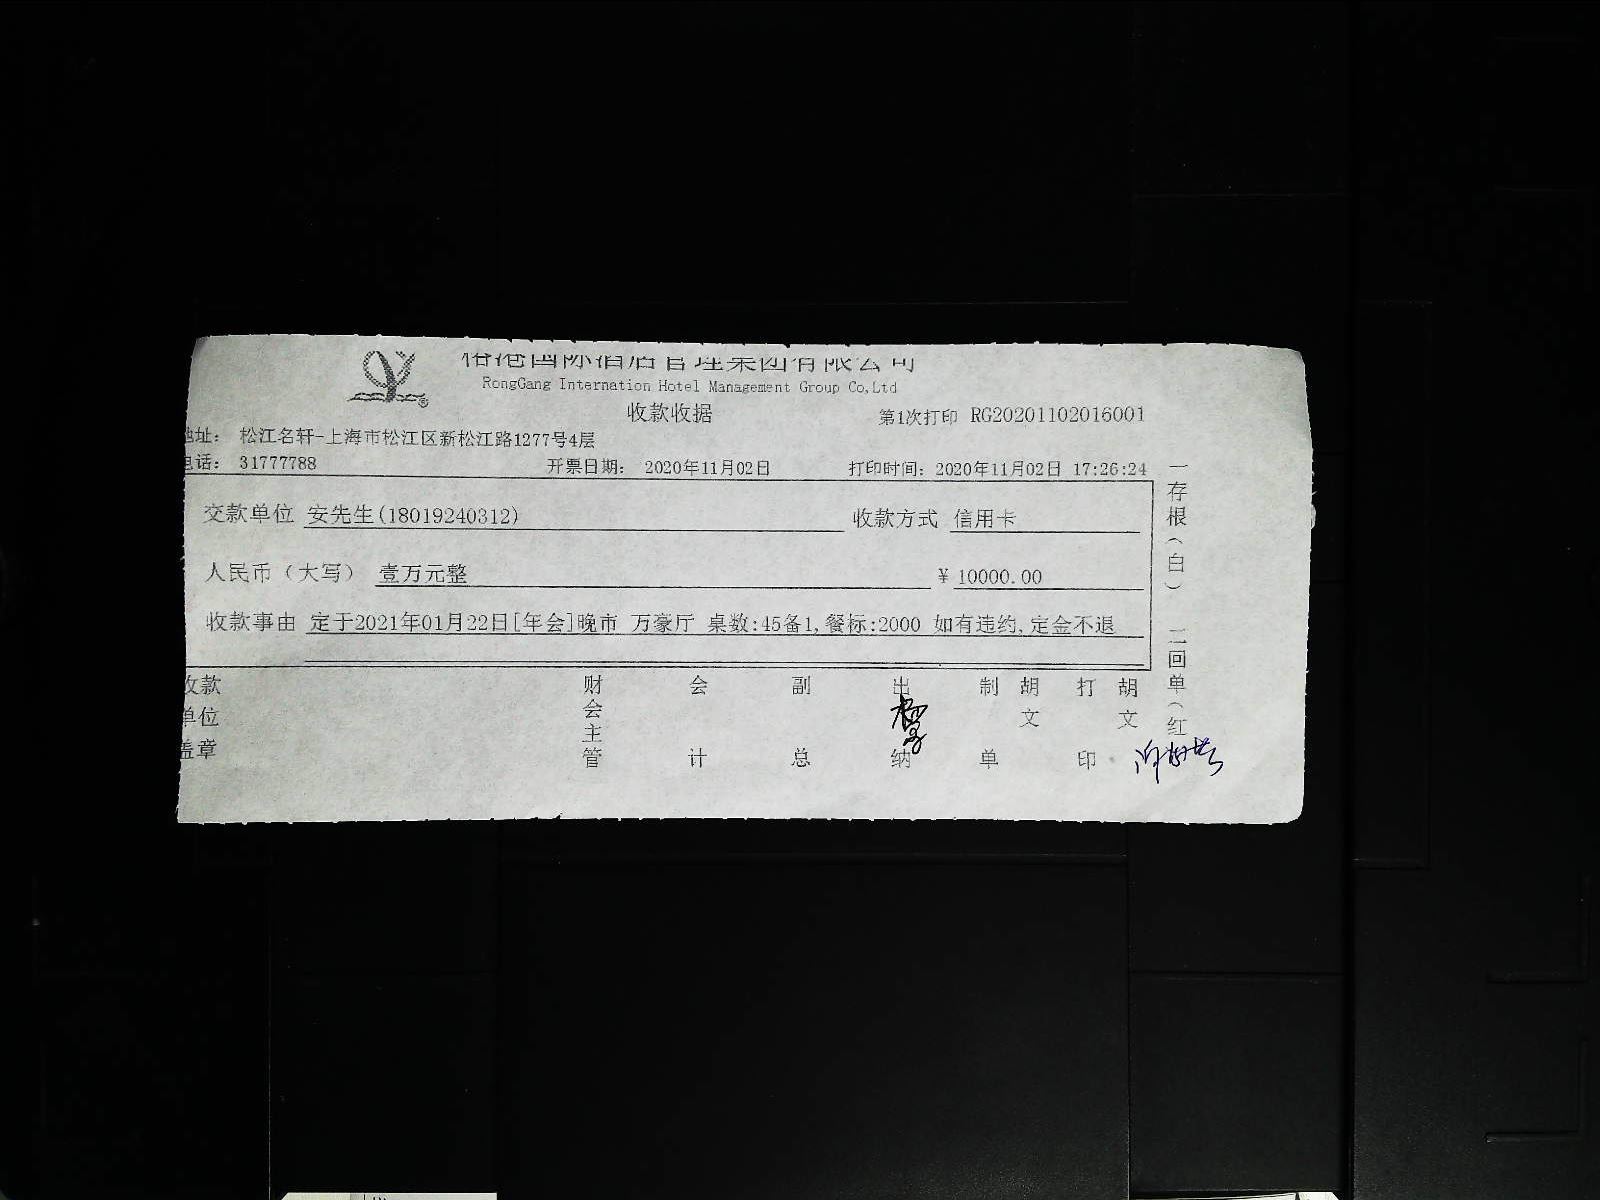 国际酒店管理集团有限公司
RongGang Internation Hotel Management Group Co,Ltd
收款收据
第1次打印 RG20201102016001
地址： 松江名轩-上海市松江区新松江路1277号4层
电话： 31777788
开票日期： 2020年11月02日
打印时间：2020年11月02日 17:26:24
交款单位 安先生(18019240312)
收款方式 信用卡
人民币（大写） 壹万元整
¥ 10000.00
收款事由 定于2021年01月22日[年会]晚市 万豪厅 桌数:45备1,餐标:2000 如有违约,定金不退
收款单位盖章
财会主管
会计
副总
出纳
制单
胡文
打印
胡文
一存根（白） 二回单（红